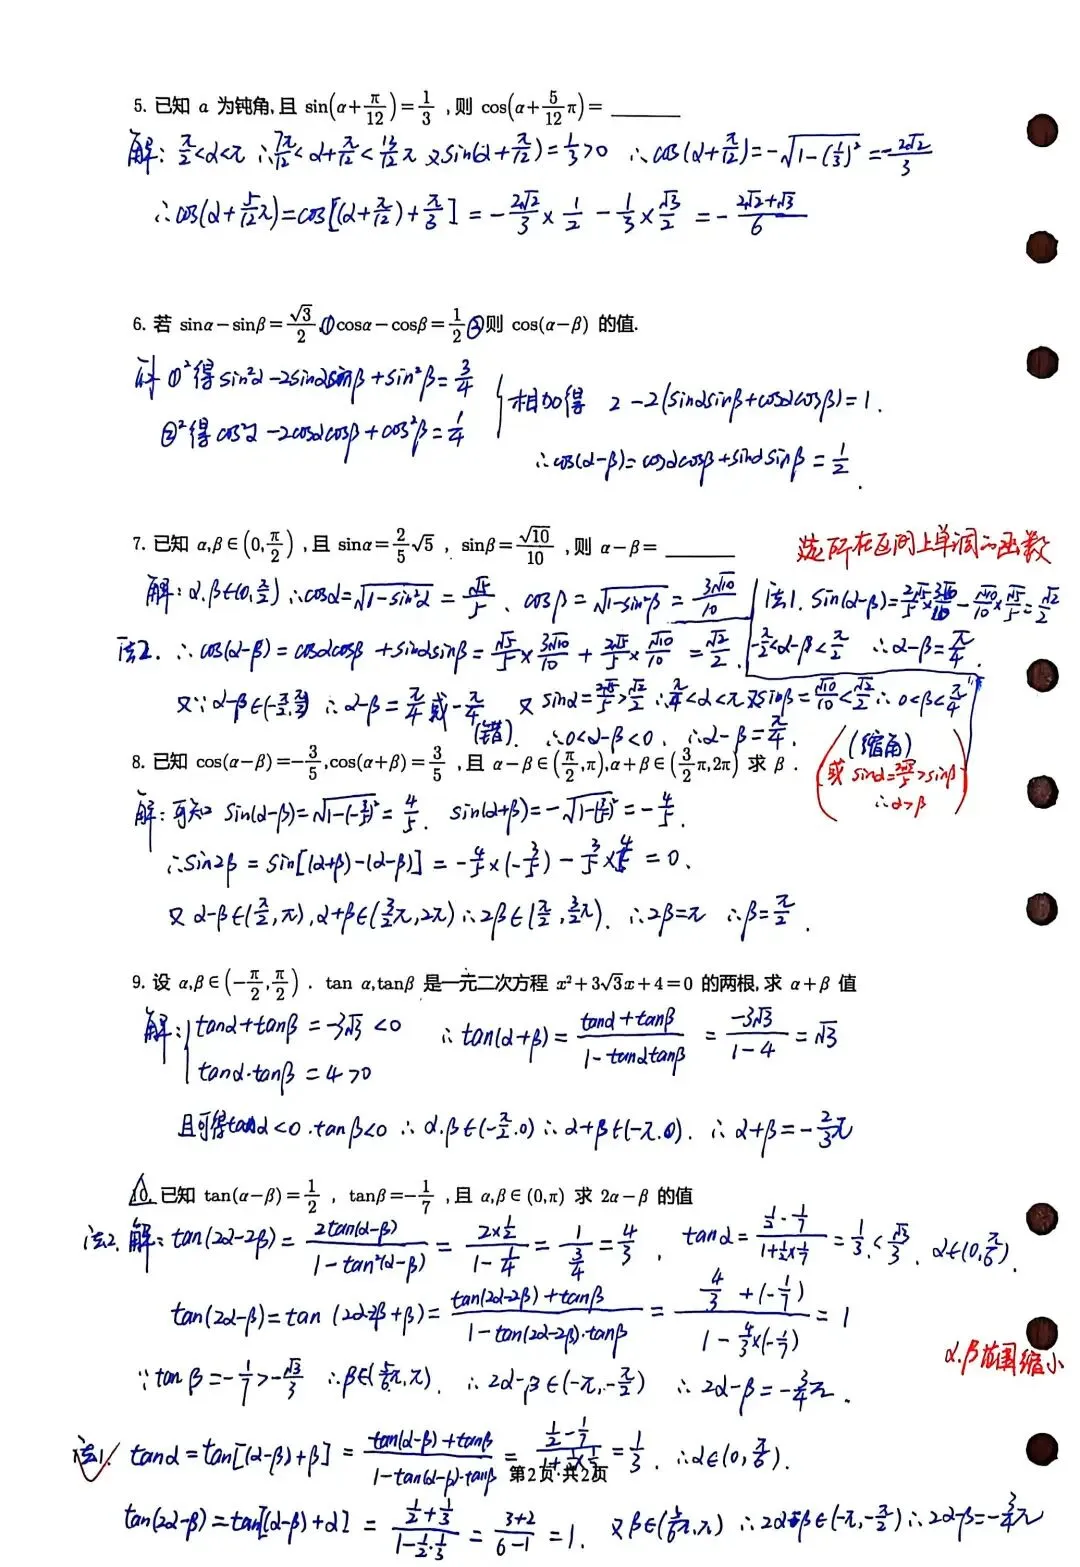 5. 已知 α 为钝角,且 sin(α+π/12)=1/3 ,则 cos(α+5/12π)= ________
解: π/2<α<π ∴7π/12<α+π/12<13/12π 又sin(α+π/12)=1/3>0 ∴cos(α+π/12)=-√(1-(1/3)²)=-2√2/3
∴cos(α+5/12π)=cos[(α+π/12)+π/3]=-2√2/3×1/2-1/3×√3/2=-(2√2+√3)/6
6. 若 sinα-sinβ=√3/2,①cosα-cosβ=1/2②则 cos(α-β) 的值.
解 ①²得 sin²α-2sinαsinβ+sin²β=3/4
②²得 cos²α-2cosαcosβ+cos²β=1/4
相加得 2-2(sinαsinβ+cosαcosβ)=1.
∴cos(α-β)=cosαcosβ+sinαsinβ=1/2.
7. 已知 α,β∈(0,π/2) ,且 sinα=2/5√5 , sinβ=√10/10 ,则 α-β= ________
选所在区间上单调的函数
解:α.β∈(0,π/2) ∴cosα=√(1-sin²α)=√5/5、cosβ=√(1-sin²β)=3√10/10
法1. sin(α-β)=2√5/5×3√10/10-√10/10×√5/5=√2/2
-π/2<α-β<π/2 ∴α-β=π/4.
法2. ∴cos(α-β)=cosαcosβ+sinαsinβ=√5/5×3√10/10+2√5/5×√10/10=√2/2.
又∵α-β∈(-π/2,π/2) ∴α-β=π/4或-π/4(错). 又 sinα=2√5/5>√2/2 ∴π/4<α<π 又sinβ=√10/10<√2/2 ∴0<β<π/4
∴0<α-β<0. ∴α-β=π/4.
(缩角)
(或 sinα=2√5/5>sinβ
∴α>β)
8. 已知 cos(α-β)=-3/5,cos(α+β)=3/5 ,且 α-β∈(π/2,π),α+β∈(3/2π,2π) 求 β .
解:可知 sin(α-β)=√(1-(-3/5)²)=4/5. sin(α+β)=-√(1-(3/5)²)=-4/5.
∴sin2β=sin[(α+β)-(α-β)]=-4/5×(-3/5)-3/5×4/5=0.
又 α-β∈(π/2,π),α+β∈(3/2π,2π) ∴2β∈(π/2,3/2π). ∴2β=π ∴β=π/2.
9. 设 α,β∈(-π/2,π/2) . tan α,tanβ 是一元二次方程 x²+3√3x+4=0 的两根,求 α+β 值
解:{tanα+tanβ=-3√3<0
tanα·tanβ=4>0
∴tan(α+β)=(tanα+tanβ)/(1-tanαtanβ)=-3√3/(1-4)=√3
且可得tanα<0.tanβ<0 ∴α.β∈(-π/2.0) ∴α+β∈(-π.0). ∴α+β=-2/3π
10. 已知 tan(α-β)=1/2 , tanβ=-1/7 ,且 α,β∈(0,π) 求 2α-β 的值
法2.解:tan(2α-2β)=2tan(α-β)/(1-tan²(α-β))=(2×1/2)/(1-1/4)=1/(3/4)=4/3. tanα=(1/2-1/7)/(1+1/2×1/7)=1/3.<√3/3. α∈(0,π/6).
tan(2α-β)=tan(2α-2β+β)=(tan(2α-2β)+tanβ)/(1-tan(2α-2β)·tanβ)=(4/3+(-1/7))/(1-4/3×(-1/7))=1
α.β范围缩小
∵tanβ=-1/7>-√3/3 ∴β∈(5/6π,π). ∴2α-β∈(-π,-π/2) ∴2α-β=-3/4π.
法1. tanα=tan[(α-β)+β]=(tan(α-β)+tanβ)/(1-tan(α-β)·tanβ)=(1/2-1/7)/(1+1/2×1/7)=1/3. ∴α∈(0,π/6).
第2页·共2页
tan(2α-β)=tan[(α-β)+α]=(1/2+1/3)/(1-1/2·1/3)=(3+2)/(6-1)=1. 又β∈(5/6π,π) ∴2α-β∈(-π,-π/2) ∴2α-β=-3/4π